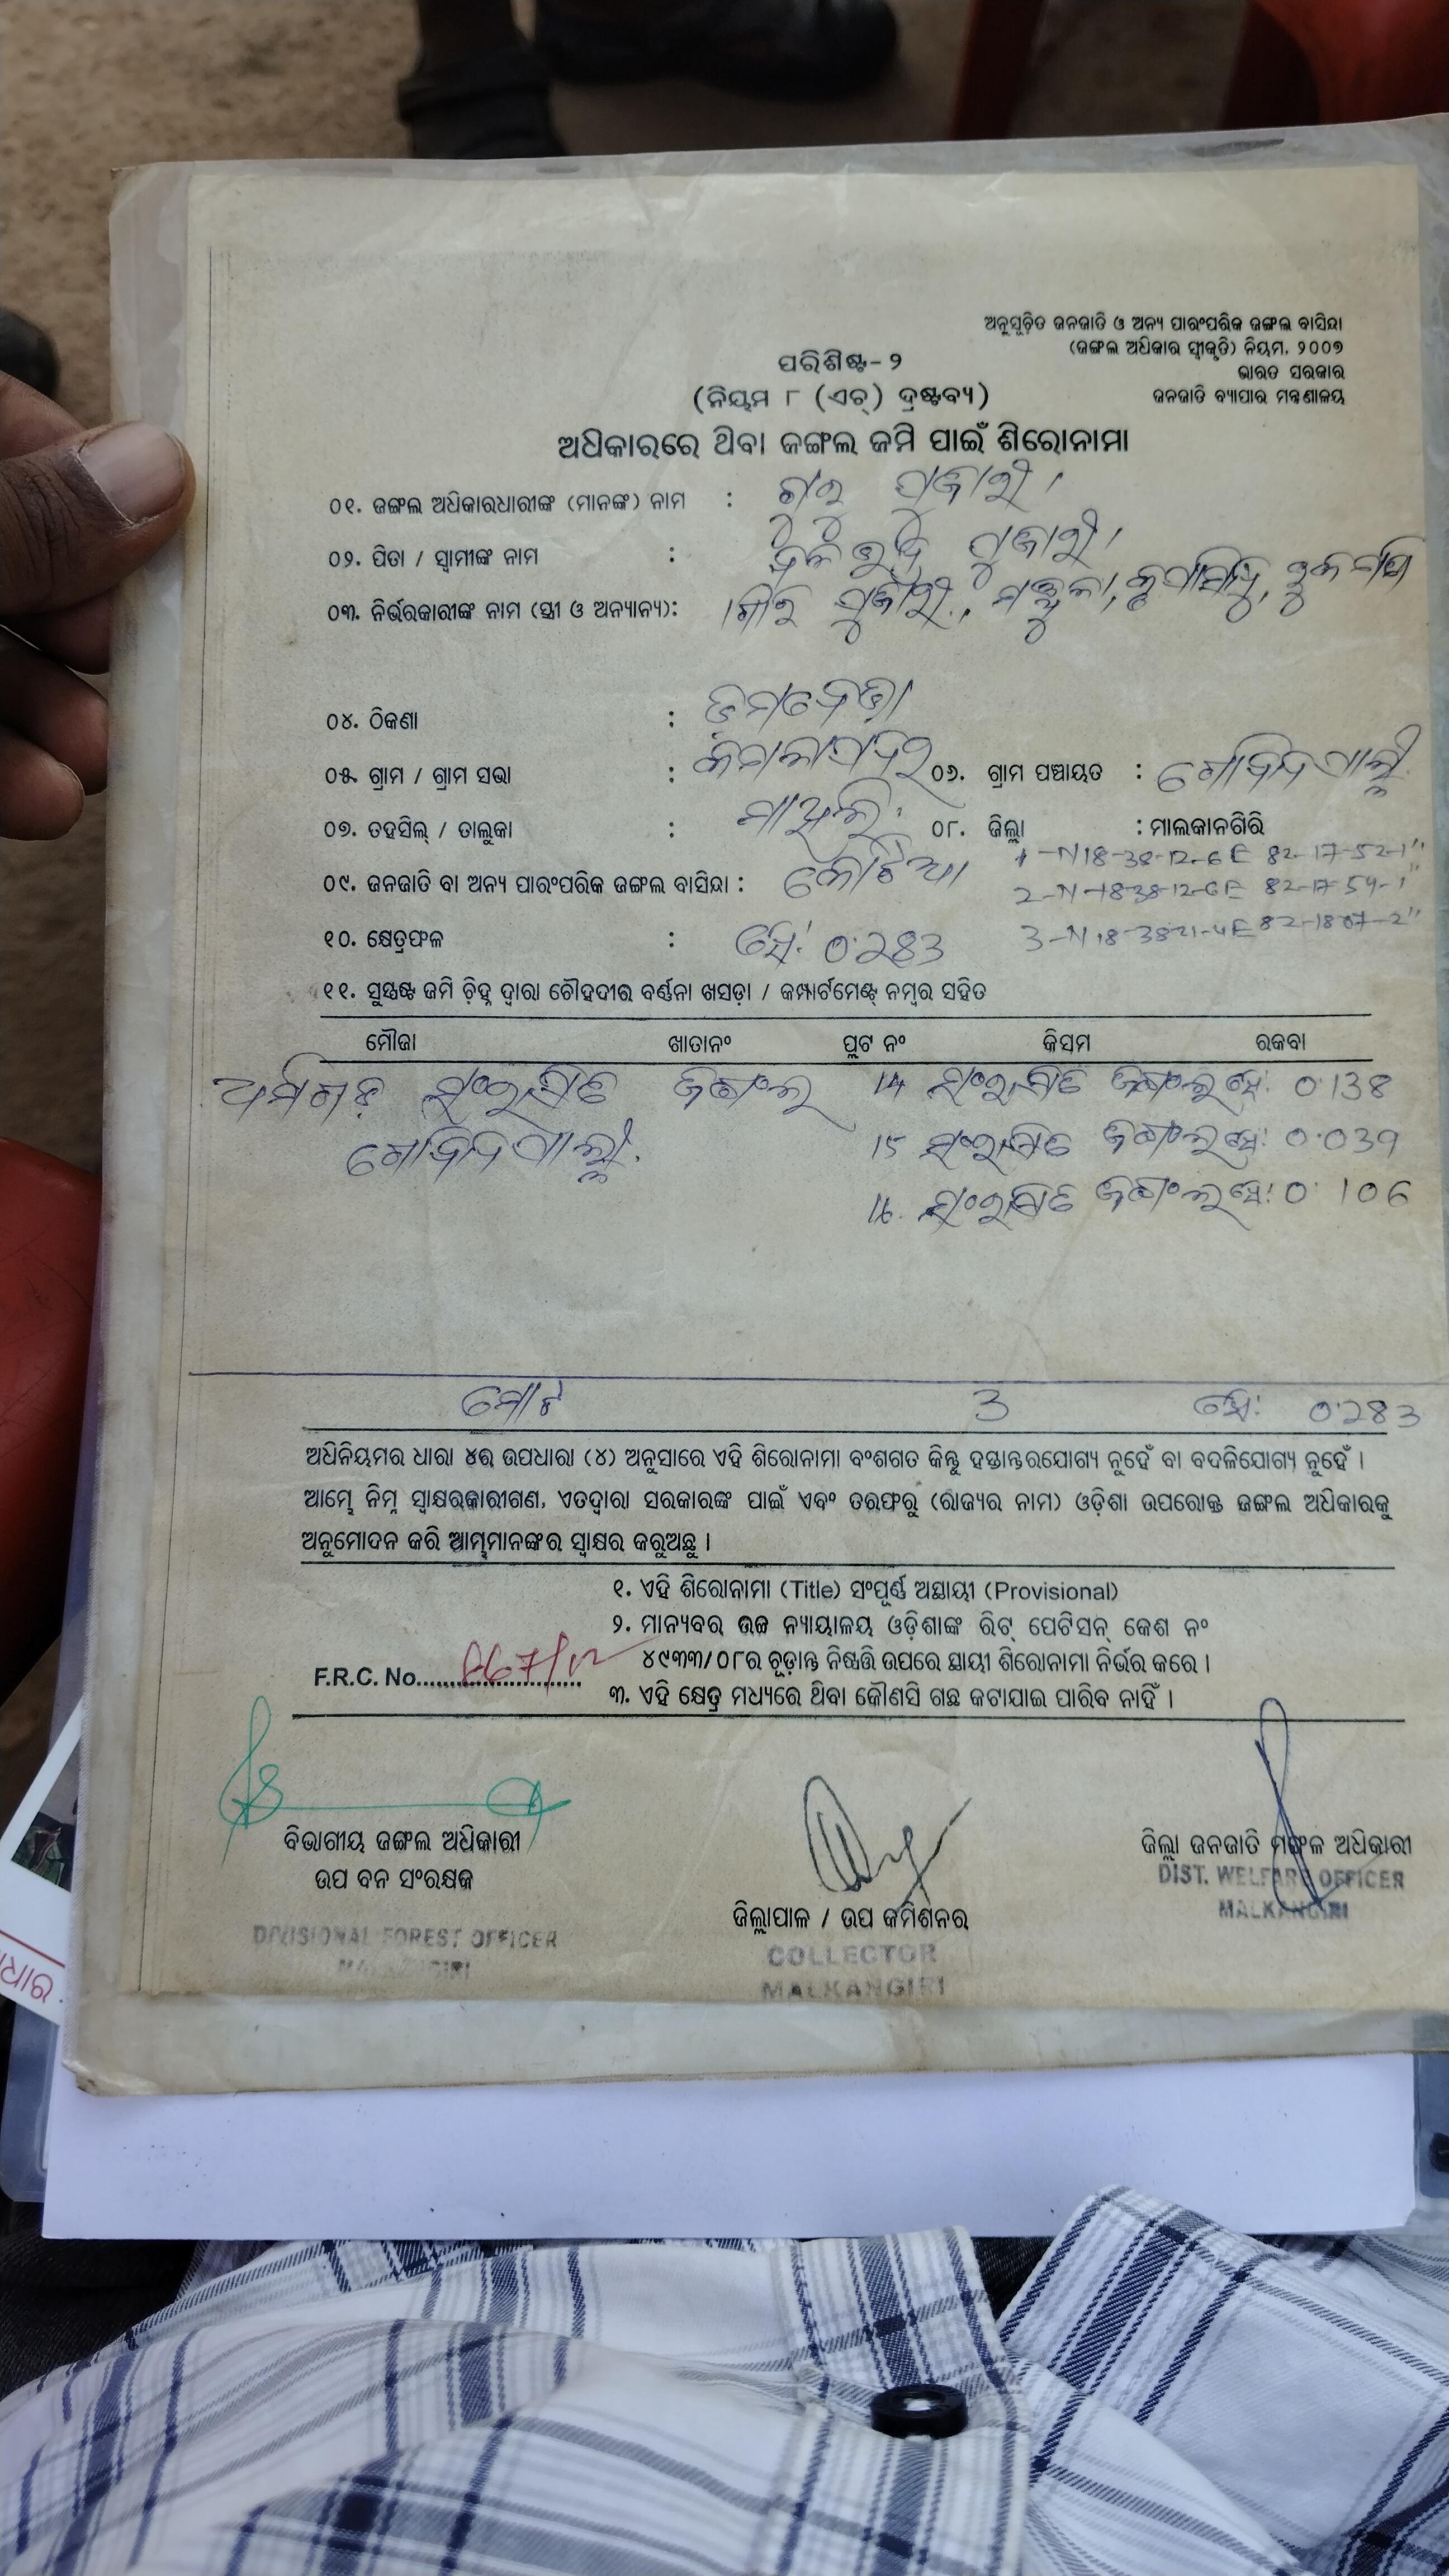 ଅନୁସୂଚିତ ଜନଜାତି ଓ ଅନ୍ୟ ପାରଂପରିକ ଜଙ୍ଗଲ ବାସିନ୍ଦା
(ଜଙ୍ଗଲ ଅଧିକାର ସ୍ୱୀକୃତି) ନିୟମ, ୨୦୦୭
ଭାରତ ସରକାର
ଜନଜାତି ବ୍ୟାପାର ମନ୍ତ୍ରଣାଳୟ
ପରିଶିଷ୍ଟ-୨
(ନିୟମ ୮ (ଏଚ୍) ଦ୍ରଷ୍ଟବ୍ୟ)
ଅଧିକାରରେ ଥିବା ଜଙ୍ଗଲ ଜମି ପାଇଁ ଶିରୋନାମା
୦୧. ଜଙ୍ଗଲ ଅଧିକାରଧାରୀଙ୍କ (ମାନଙ୍କ) ନାମ : ଗୁରୁ ପୂଜାରୀ।
୦୨. ପିତା / ସ୍ୱାମୀଙ୍କ ନାମ : ପୂଜାରୀ।
୦୩. ନିର୍ଭରକାରୀଙ୍କ ନାମ (ସ୍ତ୍ରୀ ଓ ଅନ୍ୟାନ୍ୟ): ପୂଜାରୀ,
୦୪. ଠିକଣା :
୦୫. ଗ୍ରାମ / ଗ୍ରାମ ସଭା : ୦୬. ଗ୍ରାମ ପଞ୍ଚାୟତ : ଗୋବିନ୍ଦପାଲ୍ଲୀ
୦୭. ତହସିଲ୍ / ତାଲୁକା : ମାଥିଲି ୦୮. ଜିଲ୍ଲା : ମାଲକାନଗିରି
୦୯. ଜନଜାତି ବା ଅନ୍ୟ ପାରଂପରିକ ଜଙ୍ଗଲ ବାସିନ୍ଦା : 1-N18-38-12-6 E 82-17-52-1"
2-N-18-38-12-6E 82-17 54-1"
୧୦. କ୍ଷେତ୍ରଫଳ : ହେ: 0.283 3-N18-3821-4E 82-1807-2"
୧୧. ସୁସ୍ପଷ୍ଟ ଜମି ଚିହ୍ନ ଦ୍ୱାରା ଚୌହଦୀର ବର୍ଣ୍ଣନା ଖସଡ଼ା / କମ୍ପାର୍ଟମେଣ୍ଟ୍ ନମ୍ବର ସହିତ
ମୌଜା ଖାତାନଂ ପ୍ଲଟ ନଂ କିସମ ରକବା
ସଂରକ୍ଷିତ ଜଙ୍ଗଲ 14 ସଂରକ୍ଷିତ ଜଙ୍ଗଲ ହେ: 0.138
ଗୋବିନ୍ଦପାଲ୍ଲୀ. 15 ସଂରକ୍ଷିତ ଜଙ୍ଗଲ ହେ: 0.039
16. ସଂରକ୍ଷିତ ଜଙ୍ଗଲ ହେ: 0.106
ମୋଟ 3 ହେ: 0.283
ଅଧିନିୟମର ଧାରା ୪ର ଉପଧାରା (୪) ଅନୁସାରେ ଏହି ଶିରୋନାମା ବଂଶଗତ କିନ୍ତୁ ହସ୍ତାନ୍ତରଯୋଗ୍ୟ ନୁହେଁ ବା ବଦଳିଯୋଗ୍ୟ ନୁହେଁ ।
ଆମ୍ଭେ ନିମ୍ନ ସ୍ୱାକ୍ଷରକାରୀଗଣ, ଏତଦ୍ୱାରା ସରକାରଙ୍କ ପାଇଁ ଏବଂ ତରଫରୁ (ରାଜ୍ୟର ନାମ) ଓଡ଼ିଶା ଉପରୋକ୍ତ ଜଙ୍ଗଲ ଅଧିକାରକୁ
ଅନୁମୋଦନ କରି ଆମ୍ଭମାନଙ୍କର ସ୍ୱାକ୍ଷର କରୁଅଛୁ ।
୧. ଏହି ଶିରୋନାମା (Title) ସଂପୂର୍ଣ୍ଣ ଅସ୍ଥାୟୀ (Provisional)
୨. ମାନ୍ୟବର ଉଚ୍ଚ ନ୍ୟାୟାଳୟ ଓଡ଼ିଶାଙ୍କ ରିଟ୍ ପେଟିସନ୍ କେଶ ନଂ
୪୯୩୩/୦୮ର ଚୂଡ଼ାନ୍ତ ନିଷ୍ପତ୍ତି ଉପରେ ସ୍ଥାୟୀ ଶିରୋନାମା ନିର୍ଭର କରେ ।
F.R.C. No.
୩. ଏହି କ୍ଷେତ୍ର ମଧ୍ୟରେ ଥିବା କୌଣସି ଗଛ କଟାଯାଇ ପାରିବ ନାହିଁ ।
ବିଭାଗୀୟ ଜଙ୍ଗଲ ଅଧିକାରୀ
ଉପ ବନ ସଂରକ୍ଷକ
DIVISIONAL FOREST OFFICER
MALKANGIRI
ଜିଲ୍ଲାପାଳ / ଉପ କମିଶନର
COLLECTOR
MALKANGIRI
ଜିଲ୍ଲା ଜନଜାତି ମଙ୍ଗଳ ଅଧିକାରୀ
DIST. WELFARE OFFICER
MALKANGIRI